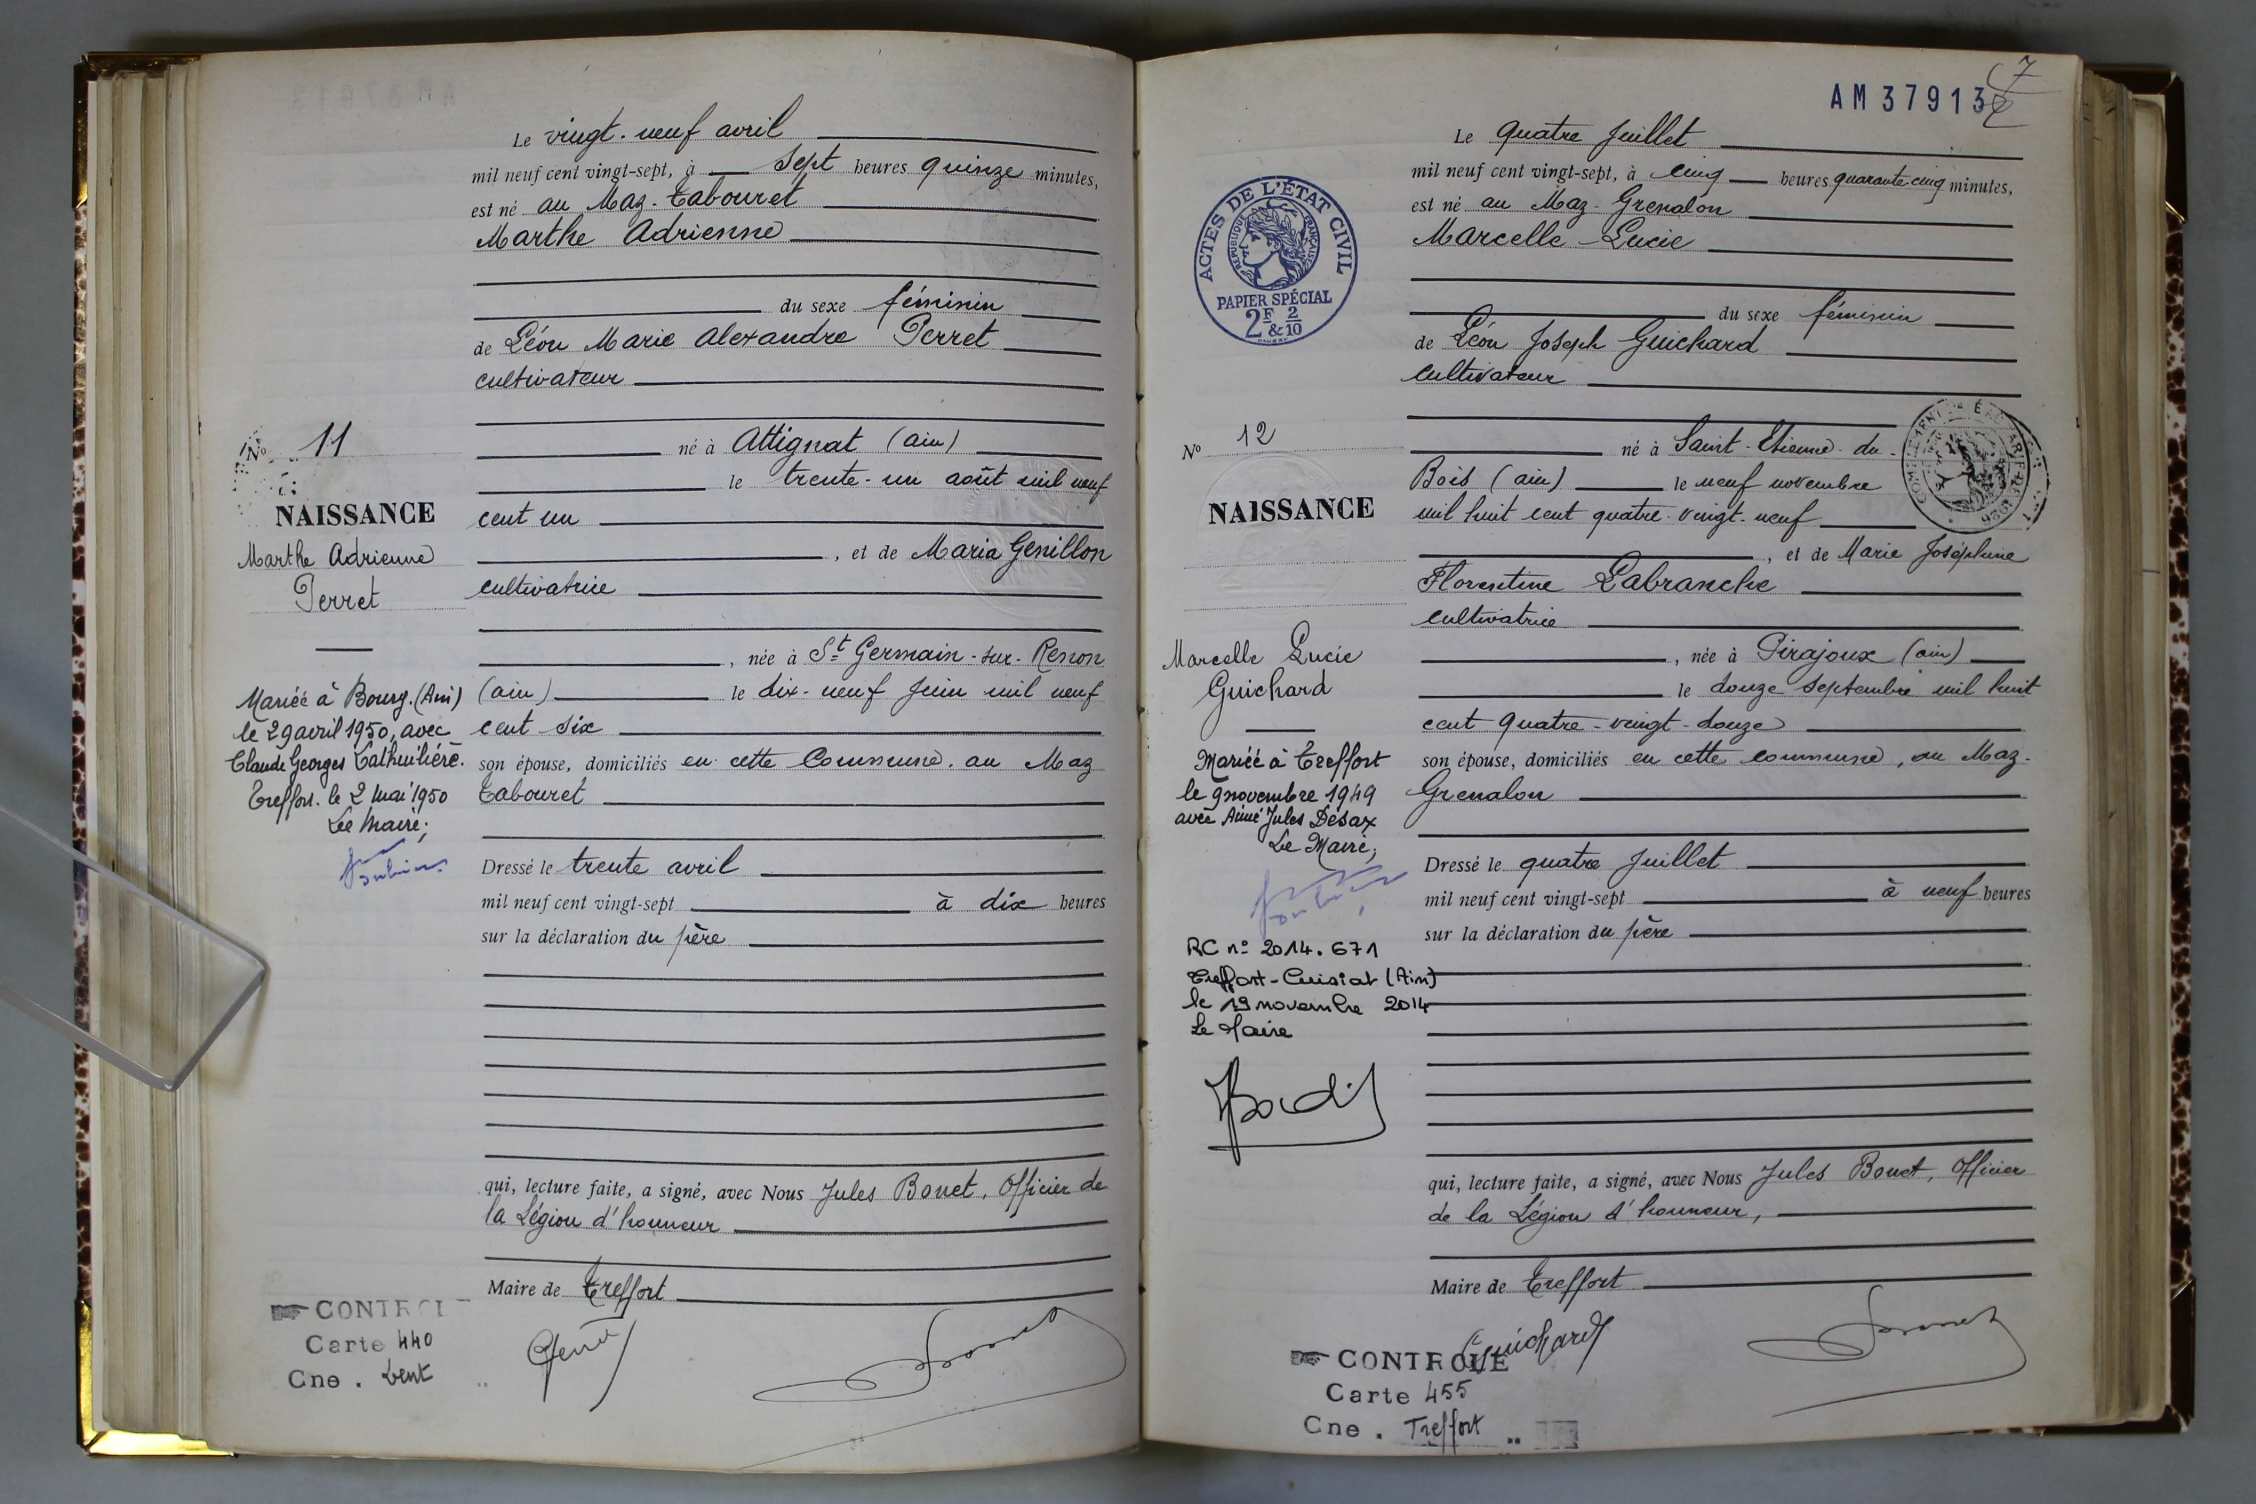 Le vingt-neuf avril
mil neuf cent vingt-sept, à sept heures quinze minutes,
est né au Maz-Tabouret
Marthe Adrienne
du sexe féminin
de Léon Marie Alexandre Perret
cultivateur
né à Attignat (ain)
le trente-un août mil neuf
cent un
, et de Maria Genillon
cultivatrice
, née à St Germain-sur-Renon
(ain) le dix-neuf Juin mil neuf
cent six
son épouse, domiciliés en cette Commune. au Maz
Tabouret
Dressé le trente avril
mil neuf cent vingt-sept à dix heures
sur la déclaration du père
qui, lecture faite, a signé, avec Nous Jules Bonet, Officier de
la Légion d'honneur
Maire de Treffort
No 11
NAISSANCE
Marthe Adrienne
Perret
Mariée à Bourg. (Ain)
le 29 avril 1950, avec
Claude Georges
Treffort. le 2 Mai 1950
Le Maire;
CONTROLE
Carte 440
Cne. Lent
AM37913
7
Le quatre Juillet
mil neuf cent vingt-sept, à cinq heures quarante cinq minutes,
est né au Maz-Grenalon
Marcelle-Lucie
du sexe féminin
de Léon Joseph Guichard
cultivateur
né à Saint-Etienne-du-
Bois (ain) le neuf novembre
mil huit cent quatre-vingt-neuf
, et de Marie Joséphine
Florentine Labranche
cultivatrice
, née à Pirajoux (ain)
le douze septembre mil huit
cent quatre-vingt-douze
son épouse, domiciliés en cette commune, au Maz-
Grenalon
Dressé le quatre Juillet
mil neuf cent vingt-sept à neuf heures
sur la déclaration du père
qui, lecture faite, a signé, avec Nous Jules Bonet, Officier
de la Légion d'honneur,
Maire de Treffort
Guichard
ACTES DE L'ÉTAT CIVIL
RÉPUBLIQUE FRANÇAISE
PAPIER SPÉCIAL
2F & 2/10
No 12
NAISSANCE
Marcelle Lucie
Guichard
Mariée à Treffort
le 9 novembre 1949
avec Aimé Jules Desax
Le Maire;
RC n° 2014.671
Treffort-Cuisiat (Ain)
le 19 novembre 2014
Le Maire
CONTROLE
Carte 455
Cne. Treffort